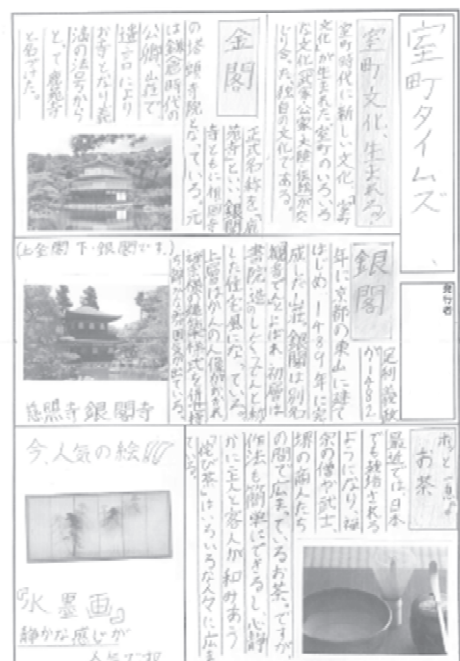 室町タイムズ
発行者
室町文化、生まれる!
室町時代に新しい文化、「室町
文化」が生まれた。室町のいろいろ
な文化(武家・公家・大陸・伝統)が
じり合った、独自の文化である。
金閣
正式名称を「鹿
苑寺」といい、銀閣
寺ともに相国寺
の塔頭寺院となっている。元
は鎌倉時代の
公卿の山荘で
遺言により
お寺となり義
満の法号から
とって鹿苑寺
と名づけた。
(上・金閣 下・銀閣です。)
銀閣
足利義政
が1482
年に京都の東山に建て
はじめ1489年に完
成した山荘。銀閣は別名
観音でんとよばれ、初層は
書院造の
した住宅風になっている。
上層は
禅宗様の建築様式を
慈照寺銀閣寺
ホッと一息
お茶
最近では、日本
でも栽培される
ようになり、禅
宗の僧や武士、
堺の商人たち
の間で広まっているお茶。ですが
作法も簡単にできるし、心静
かに主人と客人が和みあう
「侘び茶」はいろいろな人々に広ま
ている。
今、人気の絵!!!
『水墨画』
静かな感じが